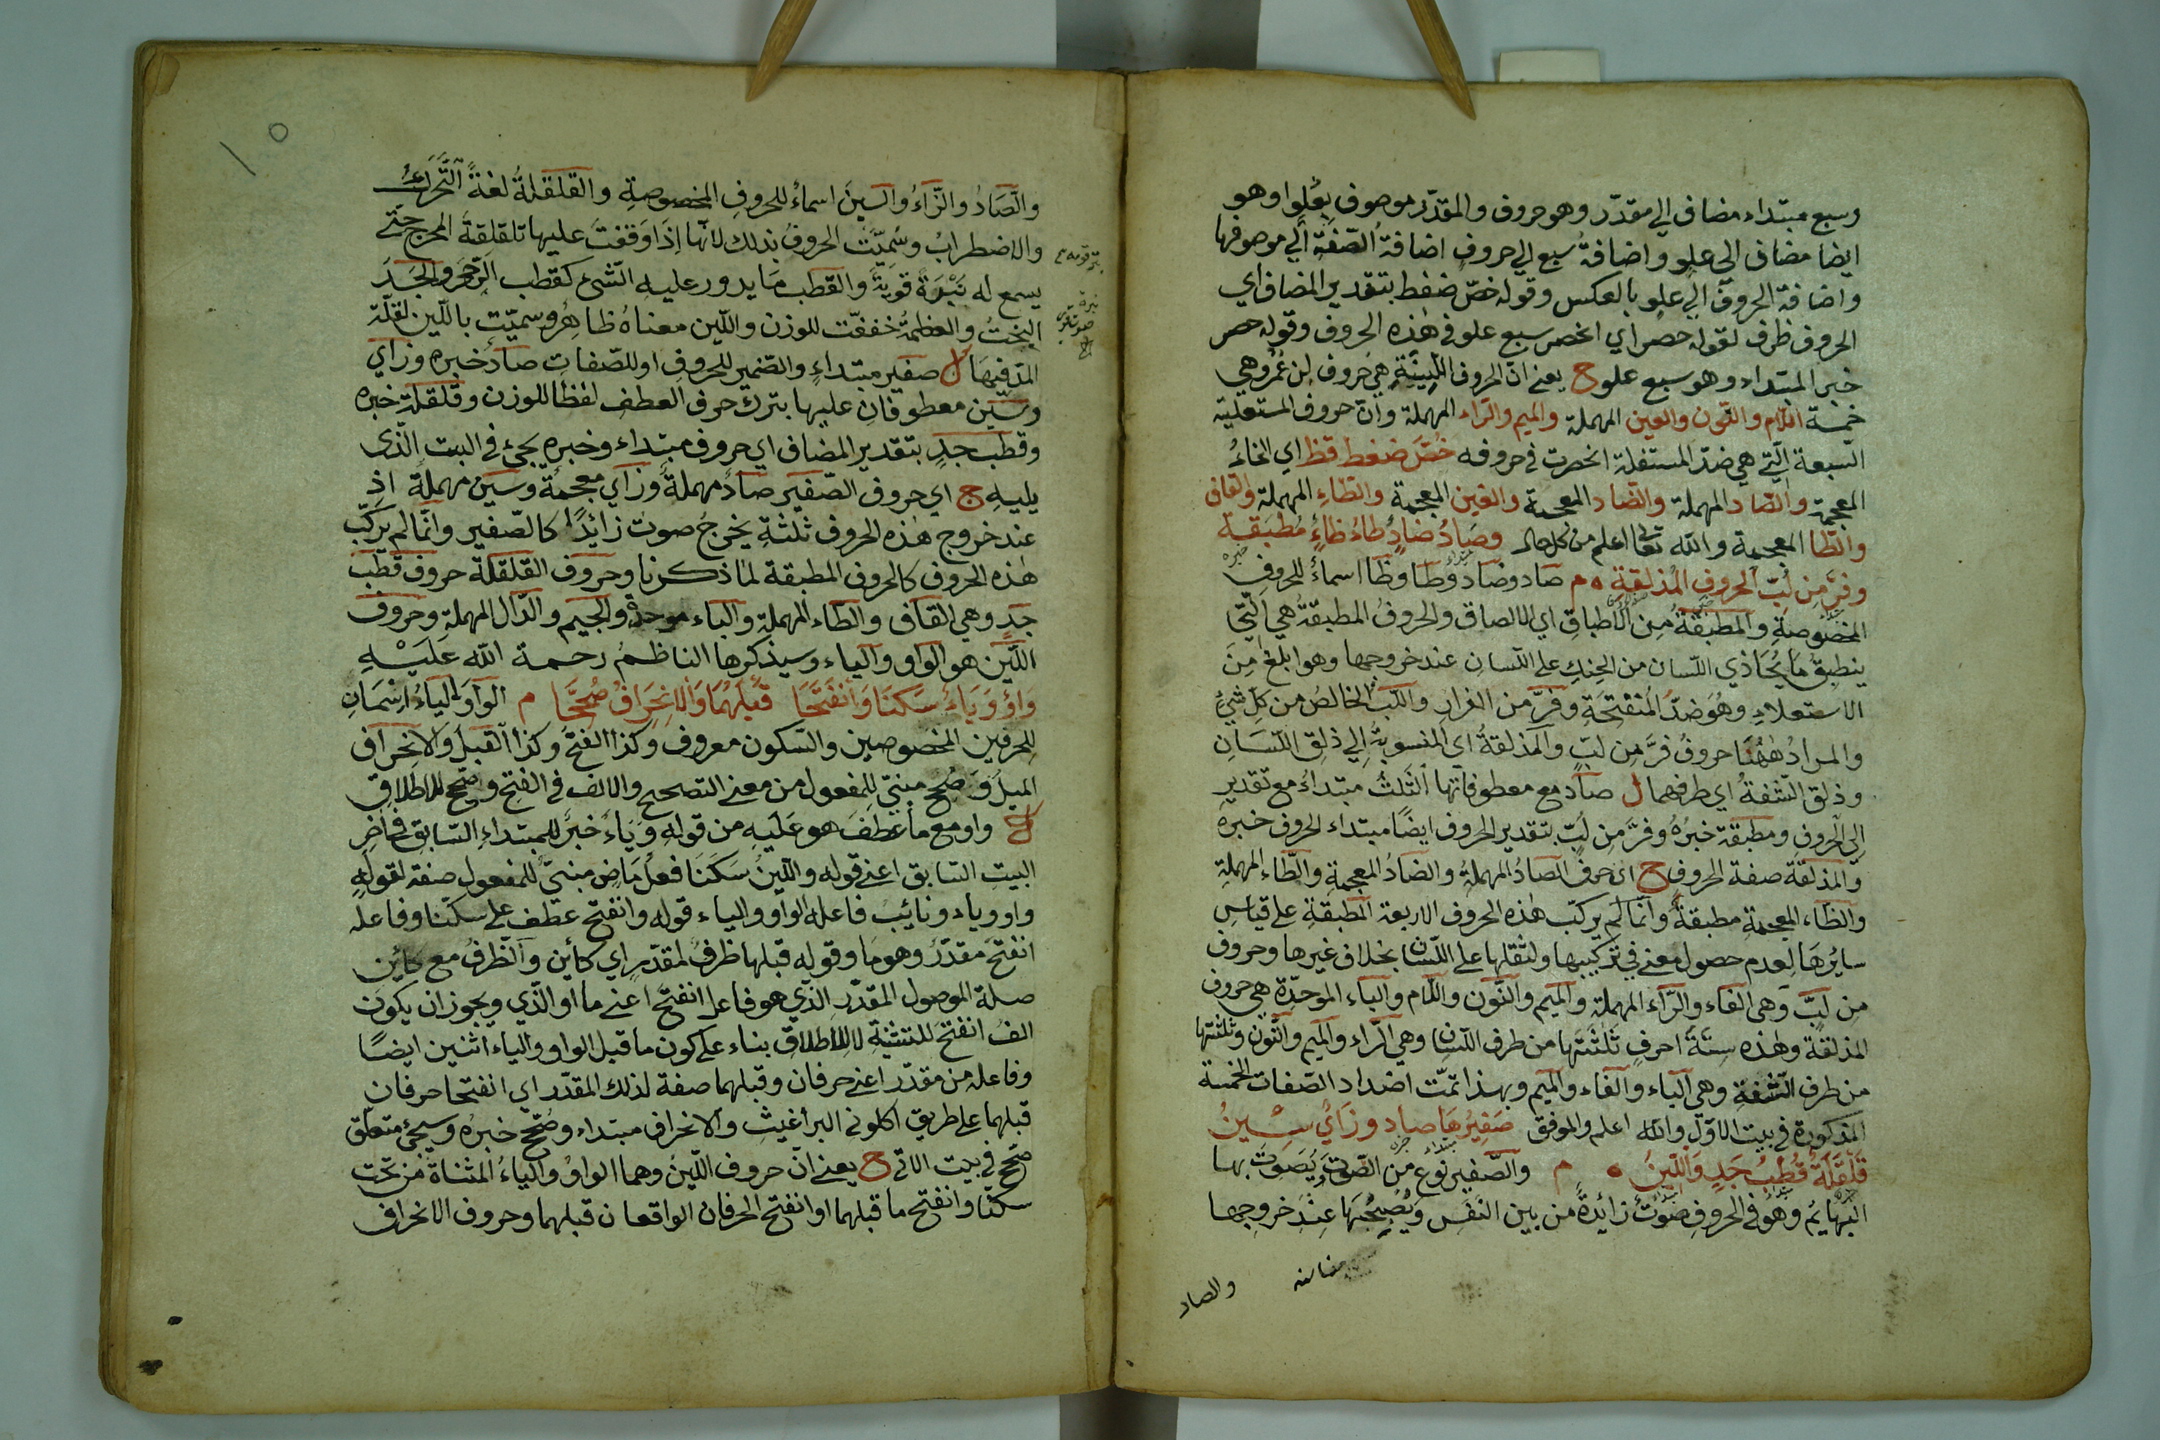 وسبع مبتداء مضاف الي مقدّر وهو حروف والمقدّر موصوف بِعُلوا وهو
ايضا مضاف الي علو واضافةُ سبع الي حروف اضافةُ الصّفة الي موصوفها
واضافة الحروف الي علو بالعكس وقوله خصّ ضغط بتقدير المضاف اي
الحروف ظرف لقوله حصر اي انحصر سبع علو في هٰذه الحروف وقوله حصر
خبر المبتداء وهو سبع علو ح يعنے انّ الحروف اللّيِنَةِ هي حروف لن عُمَرُ وهي
خمسة اللّام والنّون والعين المهملة والميم والرّاء المهملة وانّ حروف المستعلية
السّبعة الّتي هي ضدّ المستفلة انحصرت في حروفه خُصَّ ضغط قظ اي الخاءُ
المعجمة والصّاد المهملة والضّاد المعجمة والغين المعجمة والطّاءِ المهملة والقاف
والظّا المعجمة والله تعالٰ اعلم من كلّ حال وصَادُ ضادٍ طاءُ ظاءٍ مُطبَقَة
وفَرَّ مِن لُبّ الحروف المُذلقةِ م صاد وضاد وطا وظا اسماءُ للحروف
المخصوصةِ والمطبقةُ مِن الاطباق اي الالصاق والحروفُ المطبقةُ هي الّتي
ينطبقُ مَا يُحَاذي اللّسان من الحنكِ علے اللّسان عند خروجها وهو ابلغ مِنَ
الاستعلاءِ وهُوَ ضدّ المُنفتحَةِ وفَرَّ من الفرارِ واللّبّ الخالصُ من كلّ شيءٍ
والمرادُ هٰهُنَا حروفُ فرَّ مِن لبّ والمذلقةُ اي المنسوبةُ الي ذلقِ اللّسَانِ
وذلق الشّفةُ اي طرفهما ل صاد مع معطوفاتها الثّلثُ مبتداءُ مع تقدير
الي الحروف ومطبقة خبرُهُ وفرَّ مِن لُبّ بتقدير الحروف ايضًا مبتداء الحروف خبره
والمذلقة صفة الحروف ح اي حرف الصادُ المهملةُ والضادُ المعجمةِ والطّاء المهملةِ
والظّاء المعجمةِ مطبقةٌ وانّما لم يركّب هٰذه الحروف الاربعة المطبقةِ علے قياسِ
سايرُهَا لعدم حصول معنے في تركيبها ولثقلها علے اللّسان بخلاف غيرها وحروف
من لُبّ وهي الفاء والرّاء المهملة والميم والنّون واللّام والباء الموحّدة هي حروف
المذلقة وهٰذه ستّةَ احرفٍ ثَلثَتُها من طرف اللّسان وهي الرّاء والميم والنّون وثلثتها
من طرف الشّفةِ وهي الباء والفاء والميم وبهذا تمّت اضداد الصّفات الخمسة
المذكورة في بيت الاوّل والله اعلم والموفق صَفِيرُهَا صاد وزَايٌ سِينُ
قَلقَلةٌ قُطبُ جَدٍ وَاللّينُ م والصّفير نوع من الصّوت ويُصَوتُ بها
البَهايِمُ وهُوَ في الحروف صَوْتُ زائدةً من بين النَفَس ويُصحِبُهَا عِندَ خروجها
والصاد
والصّادُ والزّاءُ والسينَ اسماءُ للحروفِ المخصوصةِ والقلقلةُ لغةً التّحرّكُ
والاضطرابُ وسُمِيَّتْ الحروفُ بذلك لانّها اِذَا وَقفَتَ عليها تلقلقةَ المخرج حتّے
يسمع له نَبْرَةً قويةً والقطب مَا يدور عليه الشّئ كقطب الرّحَى والجَدّ
البَختُ والعظمةُ خففّت للوزن واللّين معناهُ ظاهرُ وسميّت باللّين لقلّة
المدّ فيهَا ل صفير مبتداءٍ والضمير للحروف او للصّفات صادٌ خبره وزاي
وسّين معطوفانِ عليها بترك حرف العطف لفظًا للوزن وقلقلة خبره
وقطب جدٍ بتقدير المضاف اي حروف مبتداء وخبره يجئ في البيت الّذي
يليهِ ح اي حروف الصّفير صادٌ مهملةٌ وزَاي معجمةٌ وسَين مهملةً اذِ
عند خروج هٰذه الحروف ثلثةِ يخرجُ صوت زائدًا كالصّفير وانّما لم يركّب
هٰذه الحروف كالحروف المطبقة لما ذكرنا وحروف القلقلة حروف قُطْب
جَدٍ وهي القاف والطّاء المهملة والباء موحدة والجيم والدّال المهملة وحروف
اللّين هو الواو والياء وسيذكرها الناظمُ رحمة الله عَلَيْهِ
وَاوٌ وَيَاءٌ سَكَنَا وَانْفَتَحَا قَبْلَهُمَا وَالاِنحِرَافُ صُحِّحَا م الواو والياءُ اِسْمَانِ
للحرفين المخصوصين والسّكون معروف وكذا الفتحُ وكذا القبلُ والانحراف
الميلُ وَصُحِّح مبنيّ للمفعول من معنے التصحيح والالف في الفتح وصحّح للاطلاق
ل واو مع ما عطفَ هو عَلَيهِ من قوله وَيَاءٌ خبرٌ للمبتداءِ السّابق في اٰخِرِ
البيت السّابق اعنے قوله واللّينُ سَكَنَا فعلُ مَاضٍ مبنيٌّ للمفعول صفة لقولهِ
واو وياء ونائب فاعله الواو والياء قوله وانفتح عطف علے سكنا وفاعله
انفتحَ مقدّرٌ وهو مَا وقوله قبلها ظرفُ لمقدّرٍ اي كائن والظرفُ مع كاين
صلة الموصول المقدّرِ الّذي هو فاعل انفتح اعنے ما او الّذي ويجوز ان يكون
الفُ انفتحَ للتثنية لا للاطلاق بناء علے كون ما قبل الواو والياء اثنين ايضًا
وفاعله من مقدّر اعنے حرفان وقبلهما صفة لذلك المقدّر اي انفتحا حرفانِ
قبلهما علے طريقِ اكلوني البراغيثِ والانحراف مبتداء وصُحّح خبرُه وسيجئ متعلّق
صحّح في بيت الاتي ح يعنے انّ حروف اللّينُ وهما الواوُ والياءُ المثناة من تحت
سكنَا وانفتح ما قبلهما او انفتح الحرفان الواقعان قبلهما وحروف الانحراف